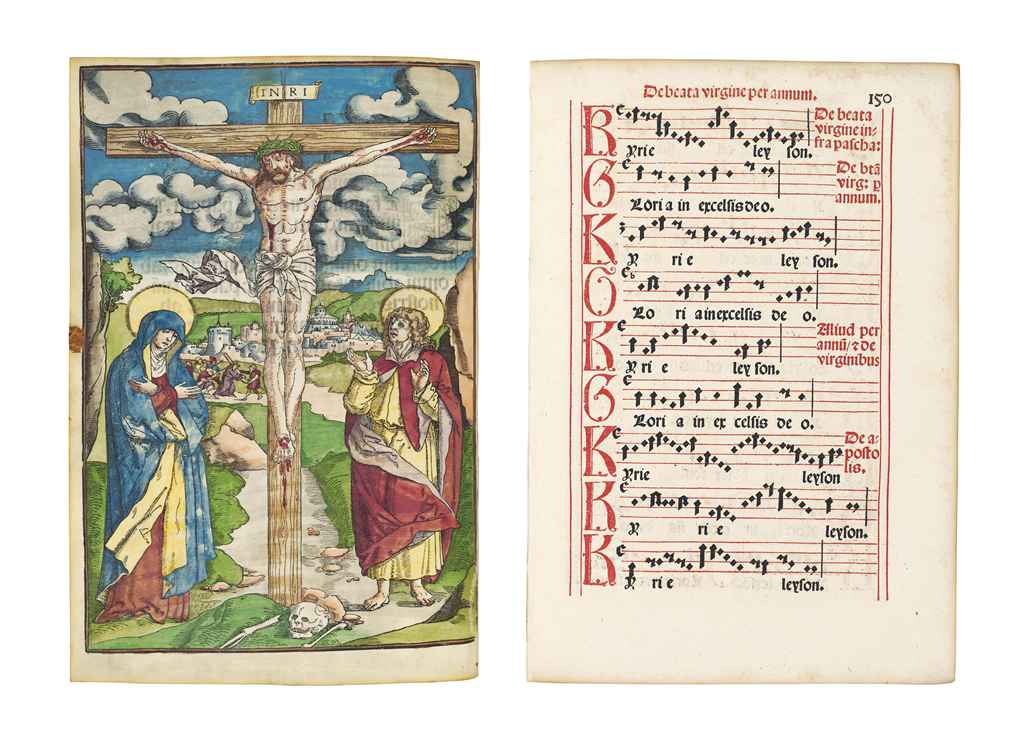 INRI
De beata virgine per annum.
150
De beata
virgine in-
fra pascha:
K
yrie ley son.
De btā
virg: p
annum.
G
Lori a in excelsis deo.
K
y ri e ley son.
G
Lo ri a in excelsis de o.
Aliud per
annū/ ⁊ de
virginibus
K
y ri e ley son.
G
Lori a in ex celsis de o.
De a-
posto
lis.
K
yrie leyson
K
y ri e leyson.
K
y ri e leyson.